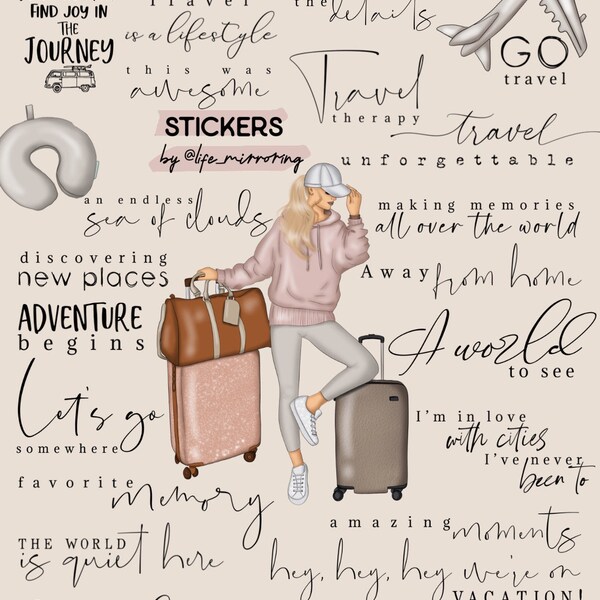 FIND JOY IN
THE
JOURNEY
Travel
is a lifestyle
this was
awesome
the
details
GO
travel
Travel
therapy
STICKERS
by @life_mirroring
travel
unforgettable
an endless
sea of clouds
making memories
all over the world
discovering
new places
Away from home
ADVENTURE
begins
A world
to see
Let's go
somewhere
I'm in love
with cities
I've never
been to
favorite
memory
amazing moments
THE WORLD
is quiet here
hey, hey, hey we're on
VACATION!